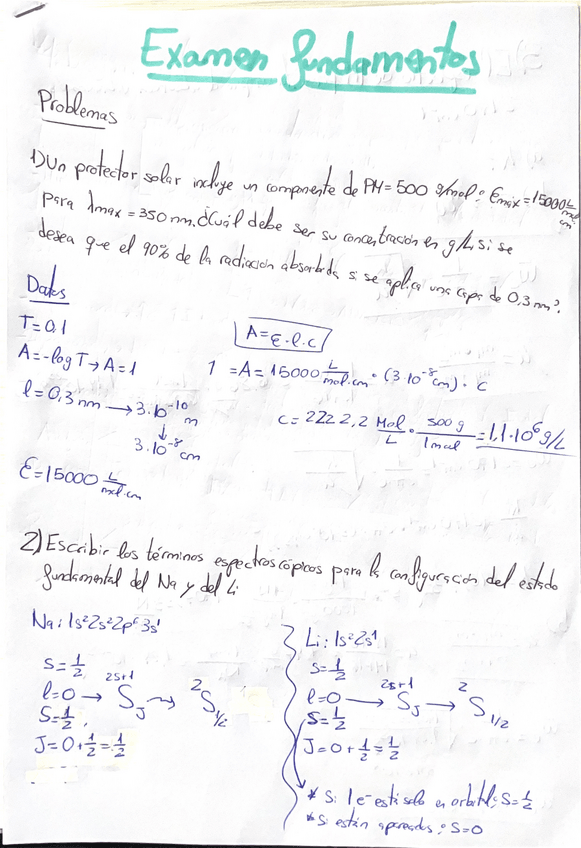 Examen fundamentos
Problemas
1) Un protector solar incluye un componente de PM = 500 g/mol: Emax = 15000 L/mol cm
para λmax = 350 nm. ¿Cuál debe ser su concentración en g/L si se
desea que el 90% de la radiación absorbida si se aplica una capa de 0,3 nm?
Datos
T = 0,1
A = -log T → A = 1
l = 0,3 nm → 3·10^-10 m
↓
3·10^-8 cm
E = 15000 L/mol·cm
A = ε·l·c
1 = A = 15000 L/mol·cm · (3·10^-8 cm) · c
c = 2222,2 Mol/L · 500 g/1 mol = 1,1·10^6 g/L
2) Escribir los términos espectroscópicos para la configuración del estado
fundamental del Na y del Li
Na: 1s² 2s² 2p⁶ 3s¹
s = 1/2
l = 0 → ^{2s+1}S_J → ²S_{1/2}
S = 1/2
J = 0 + 1/2 = 1/2
Li: 1s² 2s¹
s = 1/2
l = 0 → ^{2s+1}S_J → ²S_{1/2}
S = 1/2
J = 0 + 1/2 = 1/2
* Si 1 e⁻ está solo en orbital; S = 1/2
* Si están apareados; S = 0